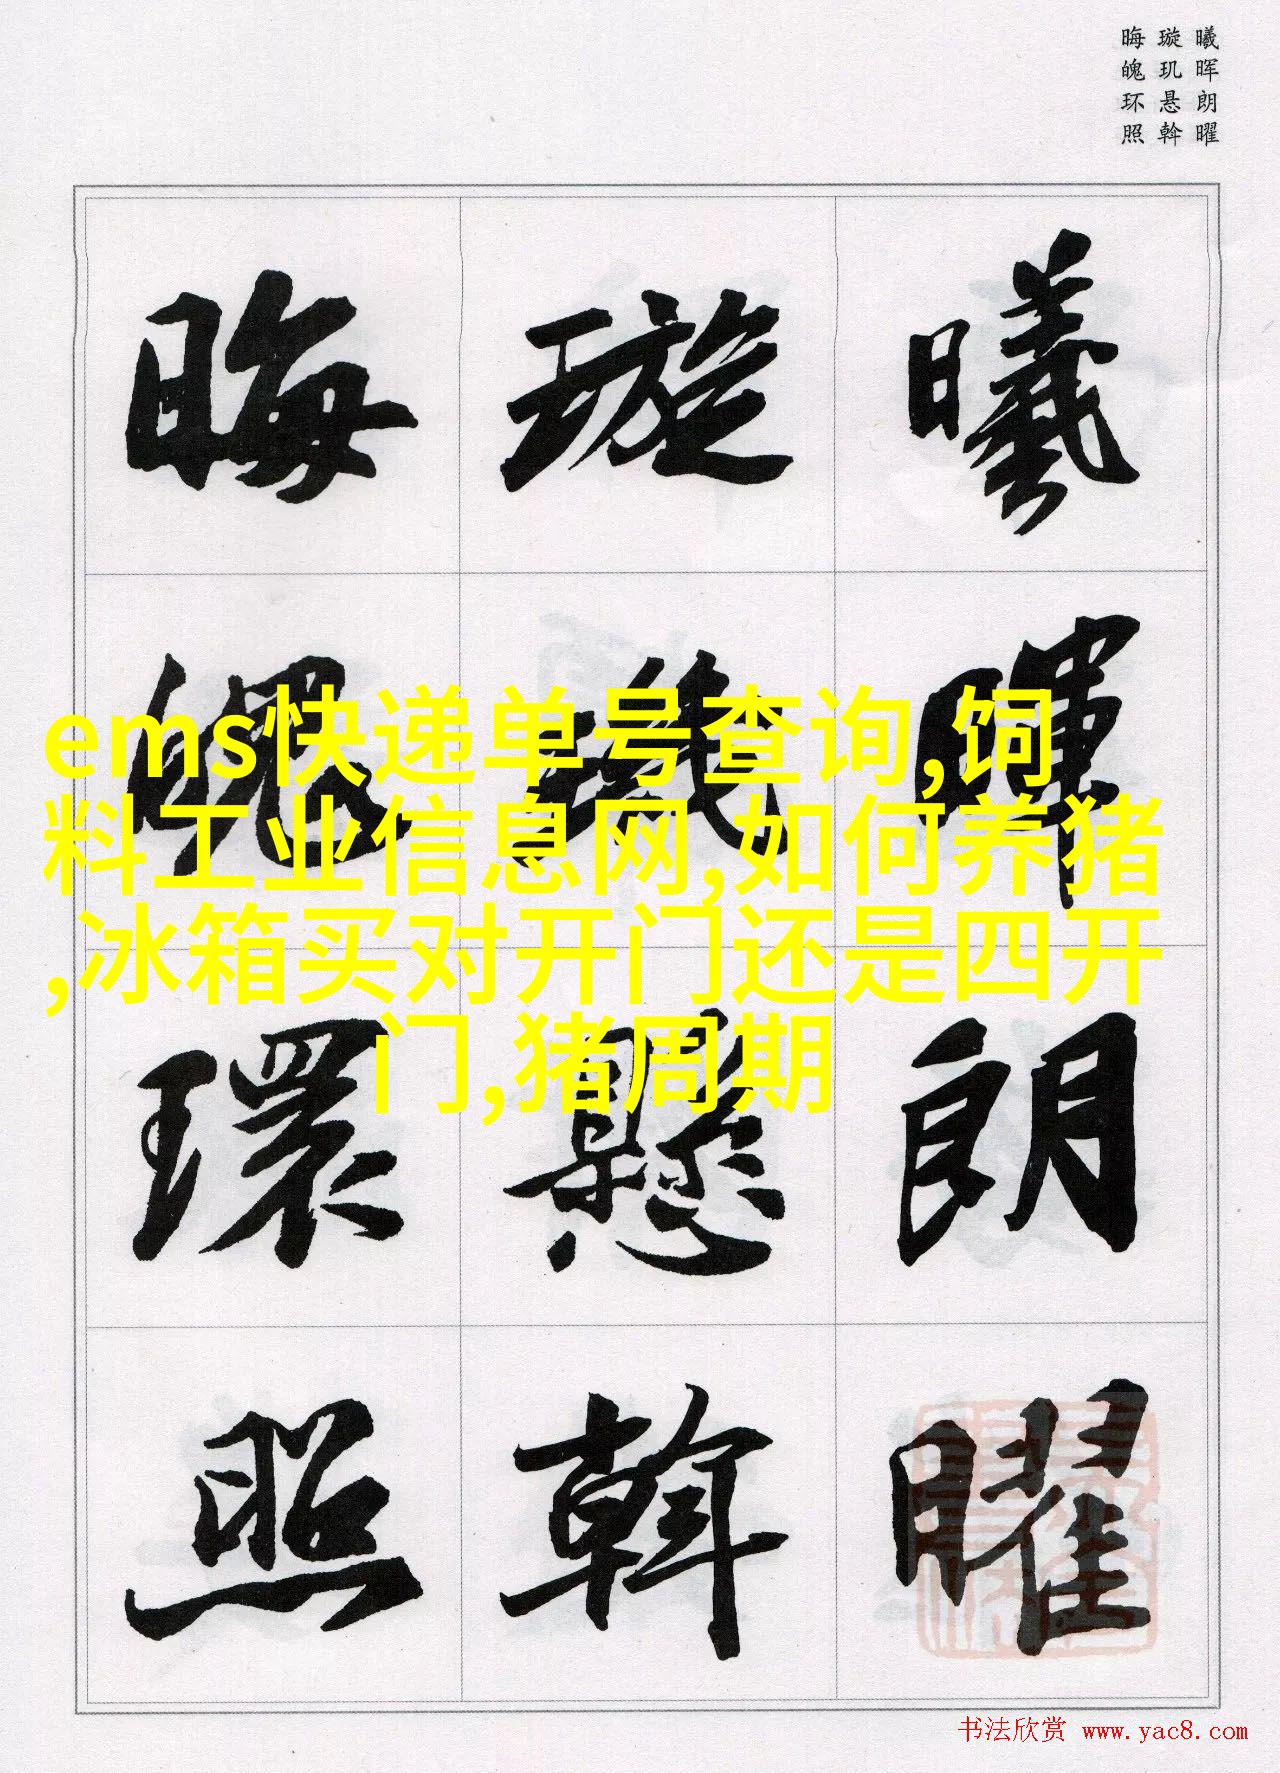 曦晖朗曜
璇玑悬斡
晦魄环照
曦 暉 朗 曜
璇 璣 懸 斡
晦 魄 環 照
ems快递单号查询,饲
料工业信息网,如何养猪
,冰箱买对开门还是四开
门,猪周期
书法欣赏 www.yac8.com